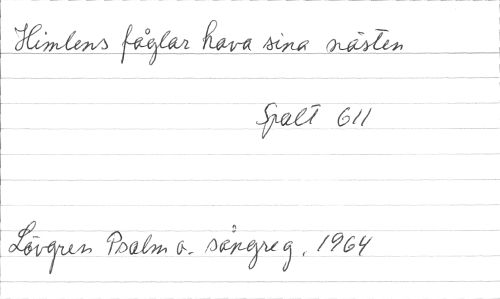 Himlens fåglar hava sina nästen
Spalt 611
Lövgren Psalm o. sångreg. 1964